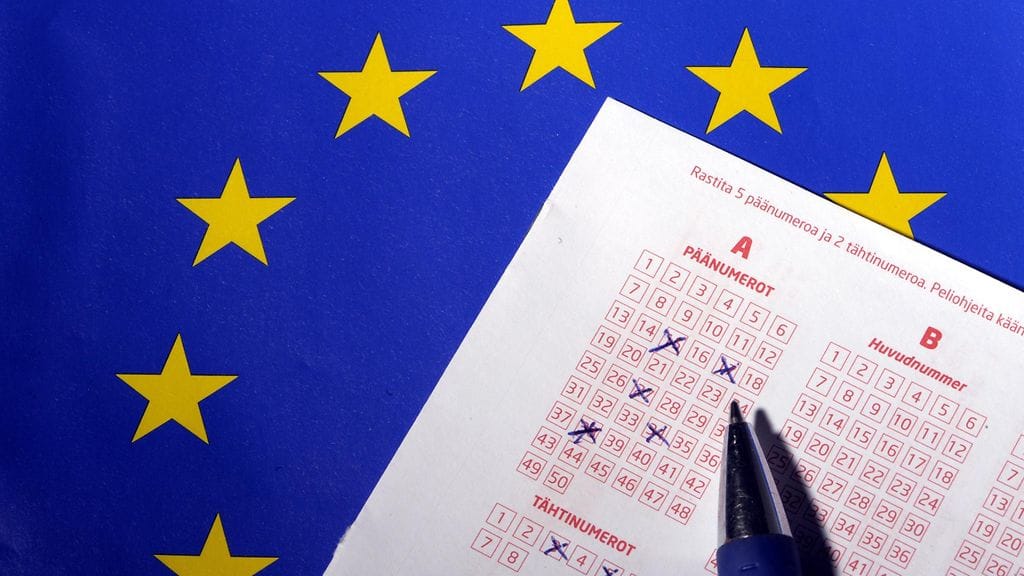 Rastita 5 päänumeroa ja 2 tähtinumeroa. Peliohjeita
A
PÄÄNUMEROT
1 2 3 4 5 6
7 8 9 10 11 12
13 14 16 18
19 20 21 22 23
25 26 28 29
31 32 33 35 36
37 39 40 41 42
43 44 45 46 47 48
49 50
TÄHTINUMEROT
1 2 4
7 8
B
Huvudnummer
1 2 3 4 5 6
7 8 9 10 11 12
13 14 15 16 17 18
19 20 21 22 23 24
25 26 27 28 29 30
33 34 35 36
7
13
19 20
25 26